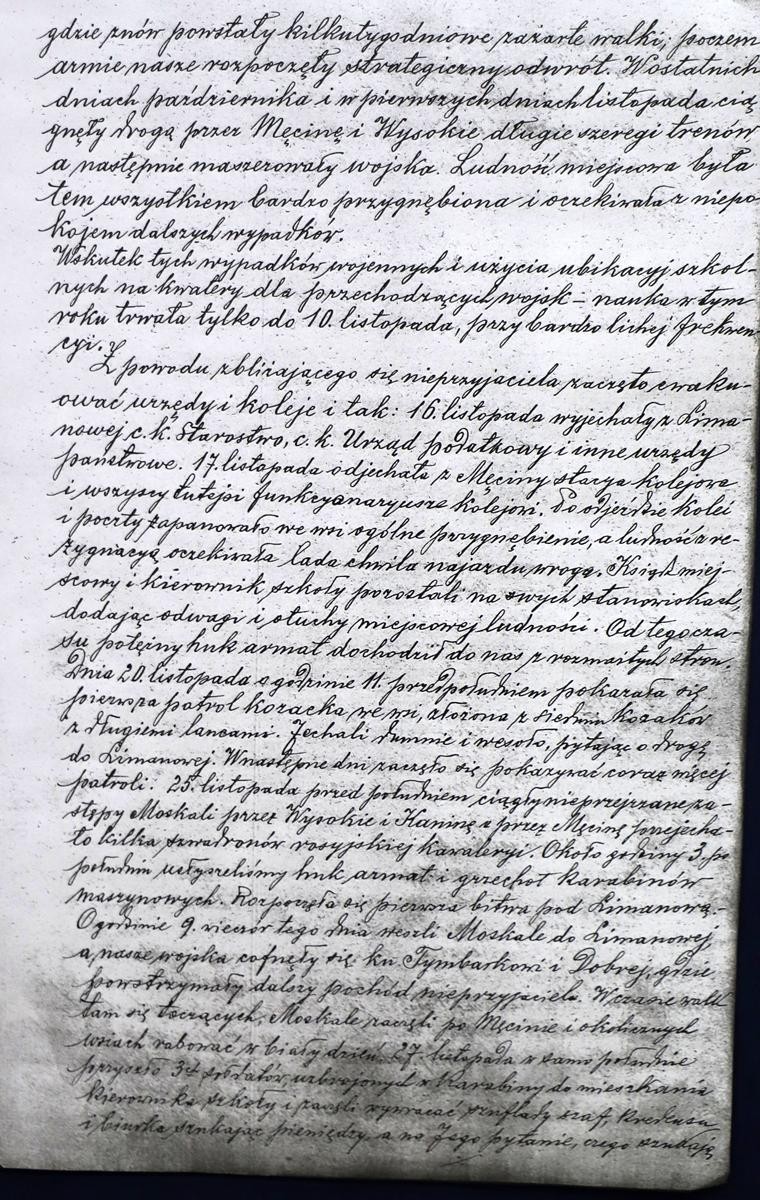 gdzie znów powstały kilkutygodniowe zażarte walki, poczem
armie nasze rozpoczęły strategiczny odwrót. W ostatnich
dniach października i w pierwszych dniach listopada cią
gnęły drogą przez Męcinę i Wysokie długie szeregi trenów
a następnie maszerowały wojska. Ludność miejscowa była
tem wszystkiem bardzo przygnębiona i oczekiwała z niepo
kojem dalszych wypadków.
Wskutek tych wypadków wojennych i użycia ubikacyj szkol-
nych na kwatery dla przechodzących wojsk – nauka w tym
roku trwała tylko do 10. listopada, przy bardzo lichej frekwen
cyi.
Z powodu zbliżającego się nieprzyjaciela zaczęto ewaku-
ować urzędy i koleje i tak: 16. listopada wyjechały z Lima-
nowej c. k. Starostwo, c. k. Urząd podatkowy i inne urzędy
państwowe. 17. listopada odjechała z Męciny stacya kolejowa
i wszyscy tutejsi funkcyonaryusze kolejowi. Po odjeździe kolei
i poczty zapanowało we wsi ogólne przygnębienie, a ludność z re-
zygnacyą oczekiwała lada chwila najazdu wroga. Ksiądz miej-
scowy i kierownik szkoły pozostali na swych stanowiskach,
dodając odwagi i otuchy miejscowej ludności. Od tego cza-
su potężny huk armat dochodził do nas z rozmaitych stron.
Dnia 20. listopada o godzinie 11. przed południem pokazała się
pierwsza patrol kozacka we wsi, złożona z siedmiu kozaków
z długiemi lancami. Jechali dumnie i wesoło, pytając o drogę
do Limanowej. W następne dni zaczęło się pokazywać coraz więcej
patroli. 25. listopada przed południem ciągły nieprzejrzane za-
stępy Moskali przez Wysokie i Kaninę a przez Męcinę przejecha-
ło kilka szwadronów rosyjskiej kawaleryi. Około godziny 3. po
południu usłyszeliśmy huk armat i grzechot karabinów
maszynowych. Rozpoczęła się pierwsza bitwa pod Limanową.
O godzinie 9. wieczór tego dnia weszli Moskale do Limanowej
a nasze wojska cofnęły się ku Tymbarkowi i Dobrej, gdzie
powstrzymały dalszy pochód nieprzyjaciela. W czasie walk
tam się toczących, Moskale zaczęli po Męcinie i okolicznych
wsiach rabować w biały dzień. 27. listopada w samo południe
przyszło sołdatów uzbrojonych w karabiny do mieszkania
kierownika szkoły i zaczęli wywracać szuflady szaf, kredensu
i biurka szukając pieniędzy, a na Jego pytanie, czego szukają,